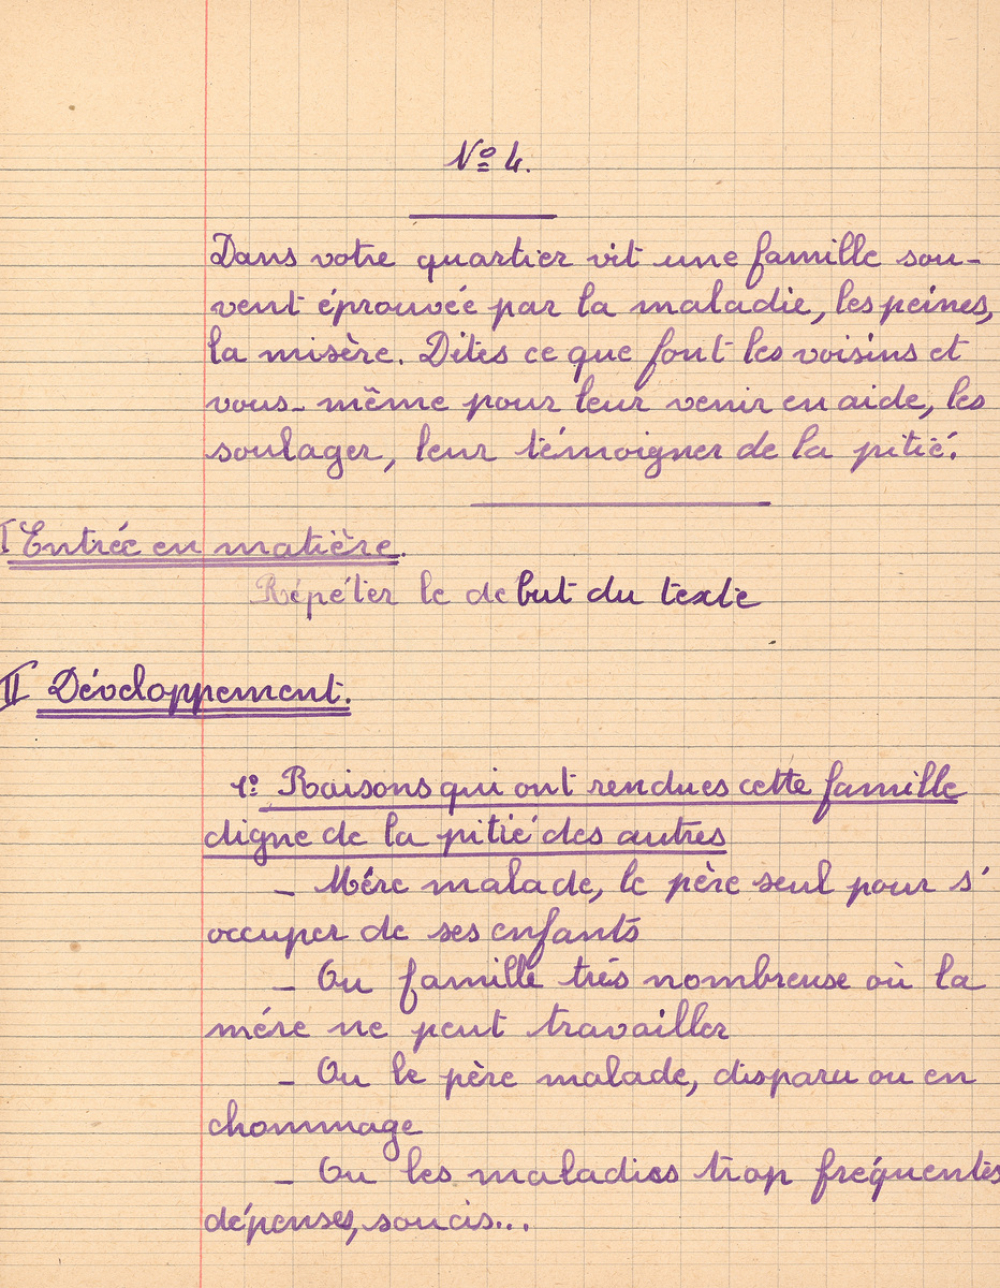 Nº 4.
Dans votre quartier vit une famille sou-
vent éprouvée par la maladie, les peines,
la misère. Dites ce que font les voisins et
vous-même pour leur venir en aide, les
soulager, leur témoigner de la pitié.
I Entrée en matière.
Répéter le debut du texte
II Développement.
1º: Raisons qui ont rendues cette famille
digne de la pitié des autres
- Mére malade, le père seul pour s'
occuper de ses enfants
- Ou famille très nombreuse où la
mére ne peut travailler
- Ou le père malade, disparu ou en
chommage
- Ou les maladies trop fréquentes
dépenses, soucis...